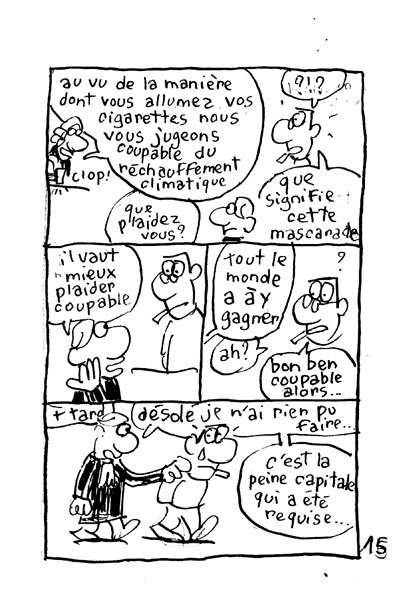 au vu de la manière
dont vous allumez vos
cigarettes nous
vous jugeons
coupable du
réchauffement
climatique
clop!
?!?
que
signifie
cette
mascarade
que
plaidez
vous?
il vaut
mieux
plaider
coupable
tout le
monde
a à y
gagner
ah?
?
bon ben
coupable
alors...
+ tard
désolé je n'ai rien pu
faire...
c'est la
peine capitale
qui a été
requise...
15